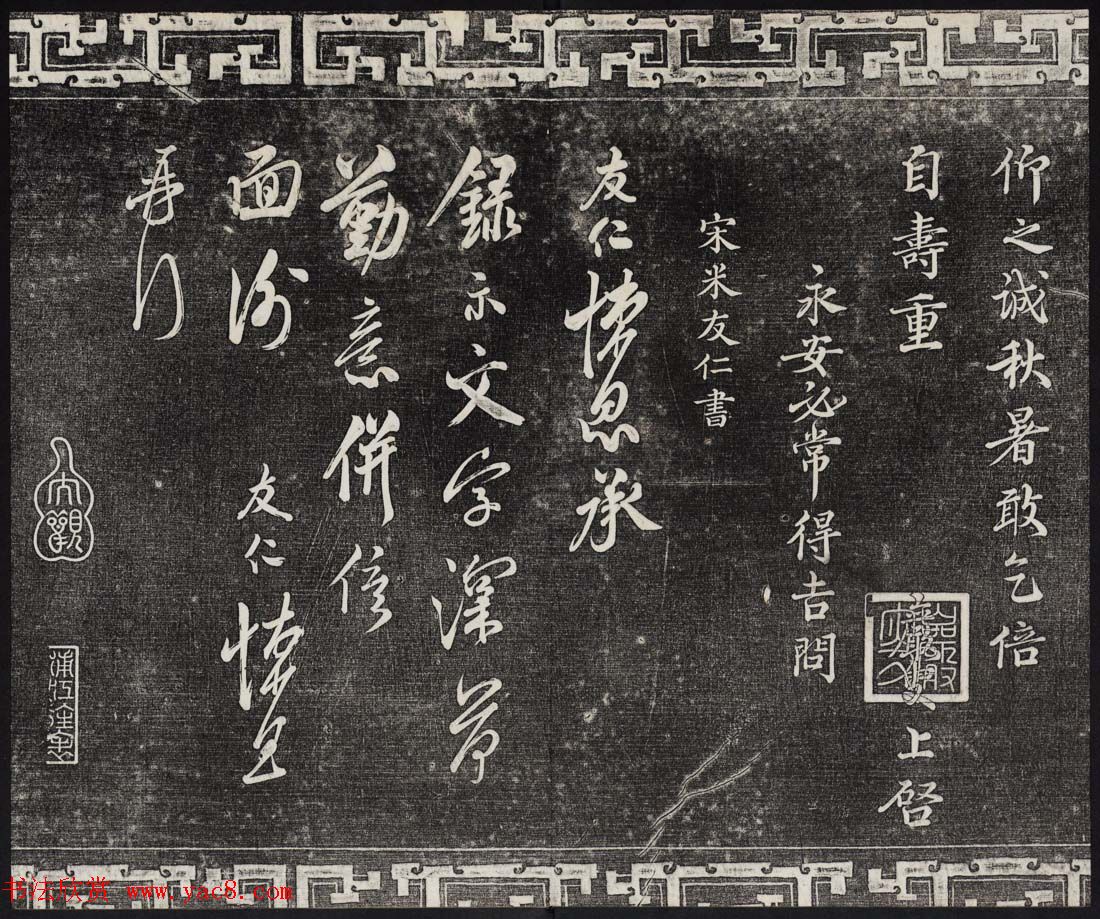 仰之诚秋暑敢乞倍
自壽重
上啓
永安必常得吉問
宋米友仁書
友仁悚息承
録示文字深荷
勤意併俟
面谢
友仁悚息
再行
大觀
书法欣赏 www.yac8.com